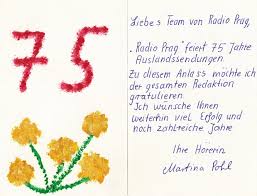 75
Liebes Team von Radio Prag,
"Radio Prag" feiert 75 Jahre
Auslandssendungen.
Zu diesem Anlass möchte ich
der gesamten Redaktion
gratulieren.
Ich wünsche Ihnen
weiterhin viel Erfolg und
noch zahlreiche Jahre
Ihre Hörerin
Martina Pohl